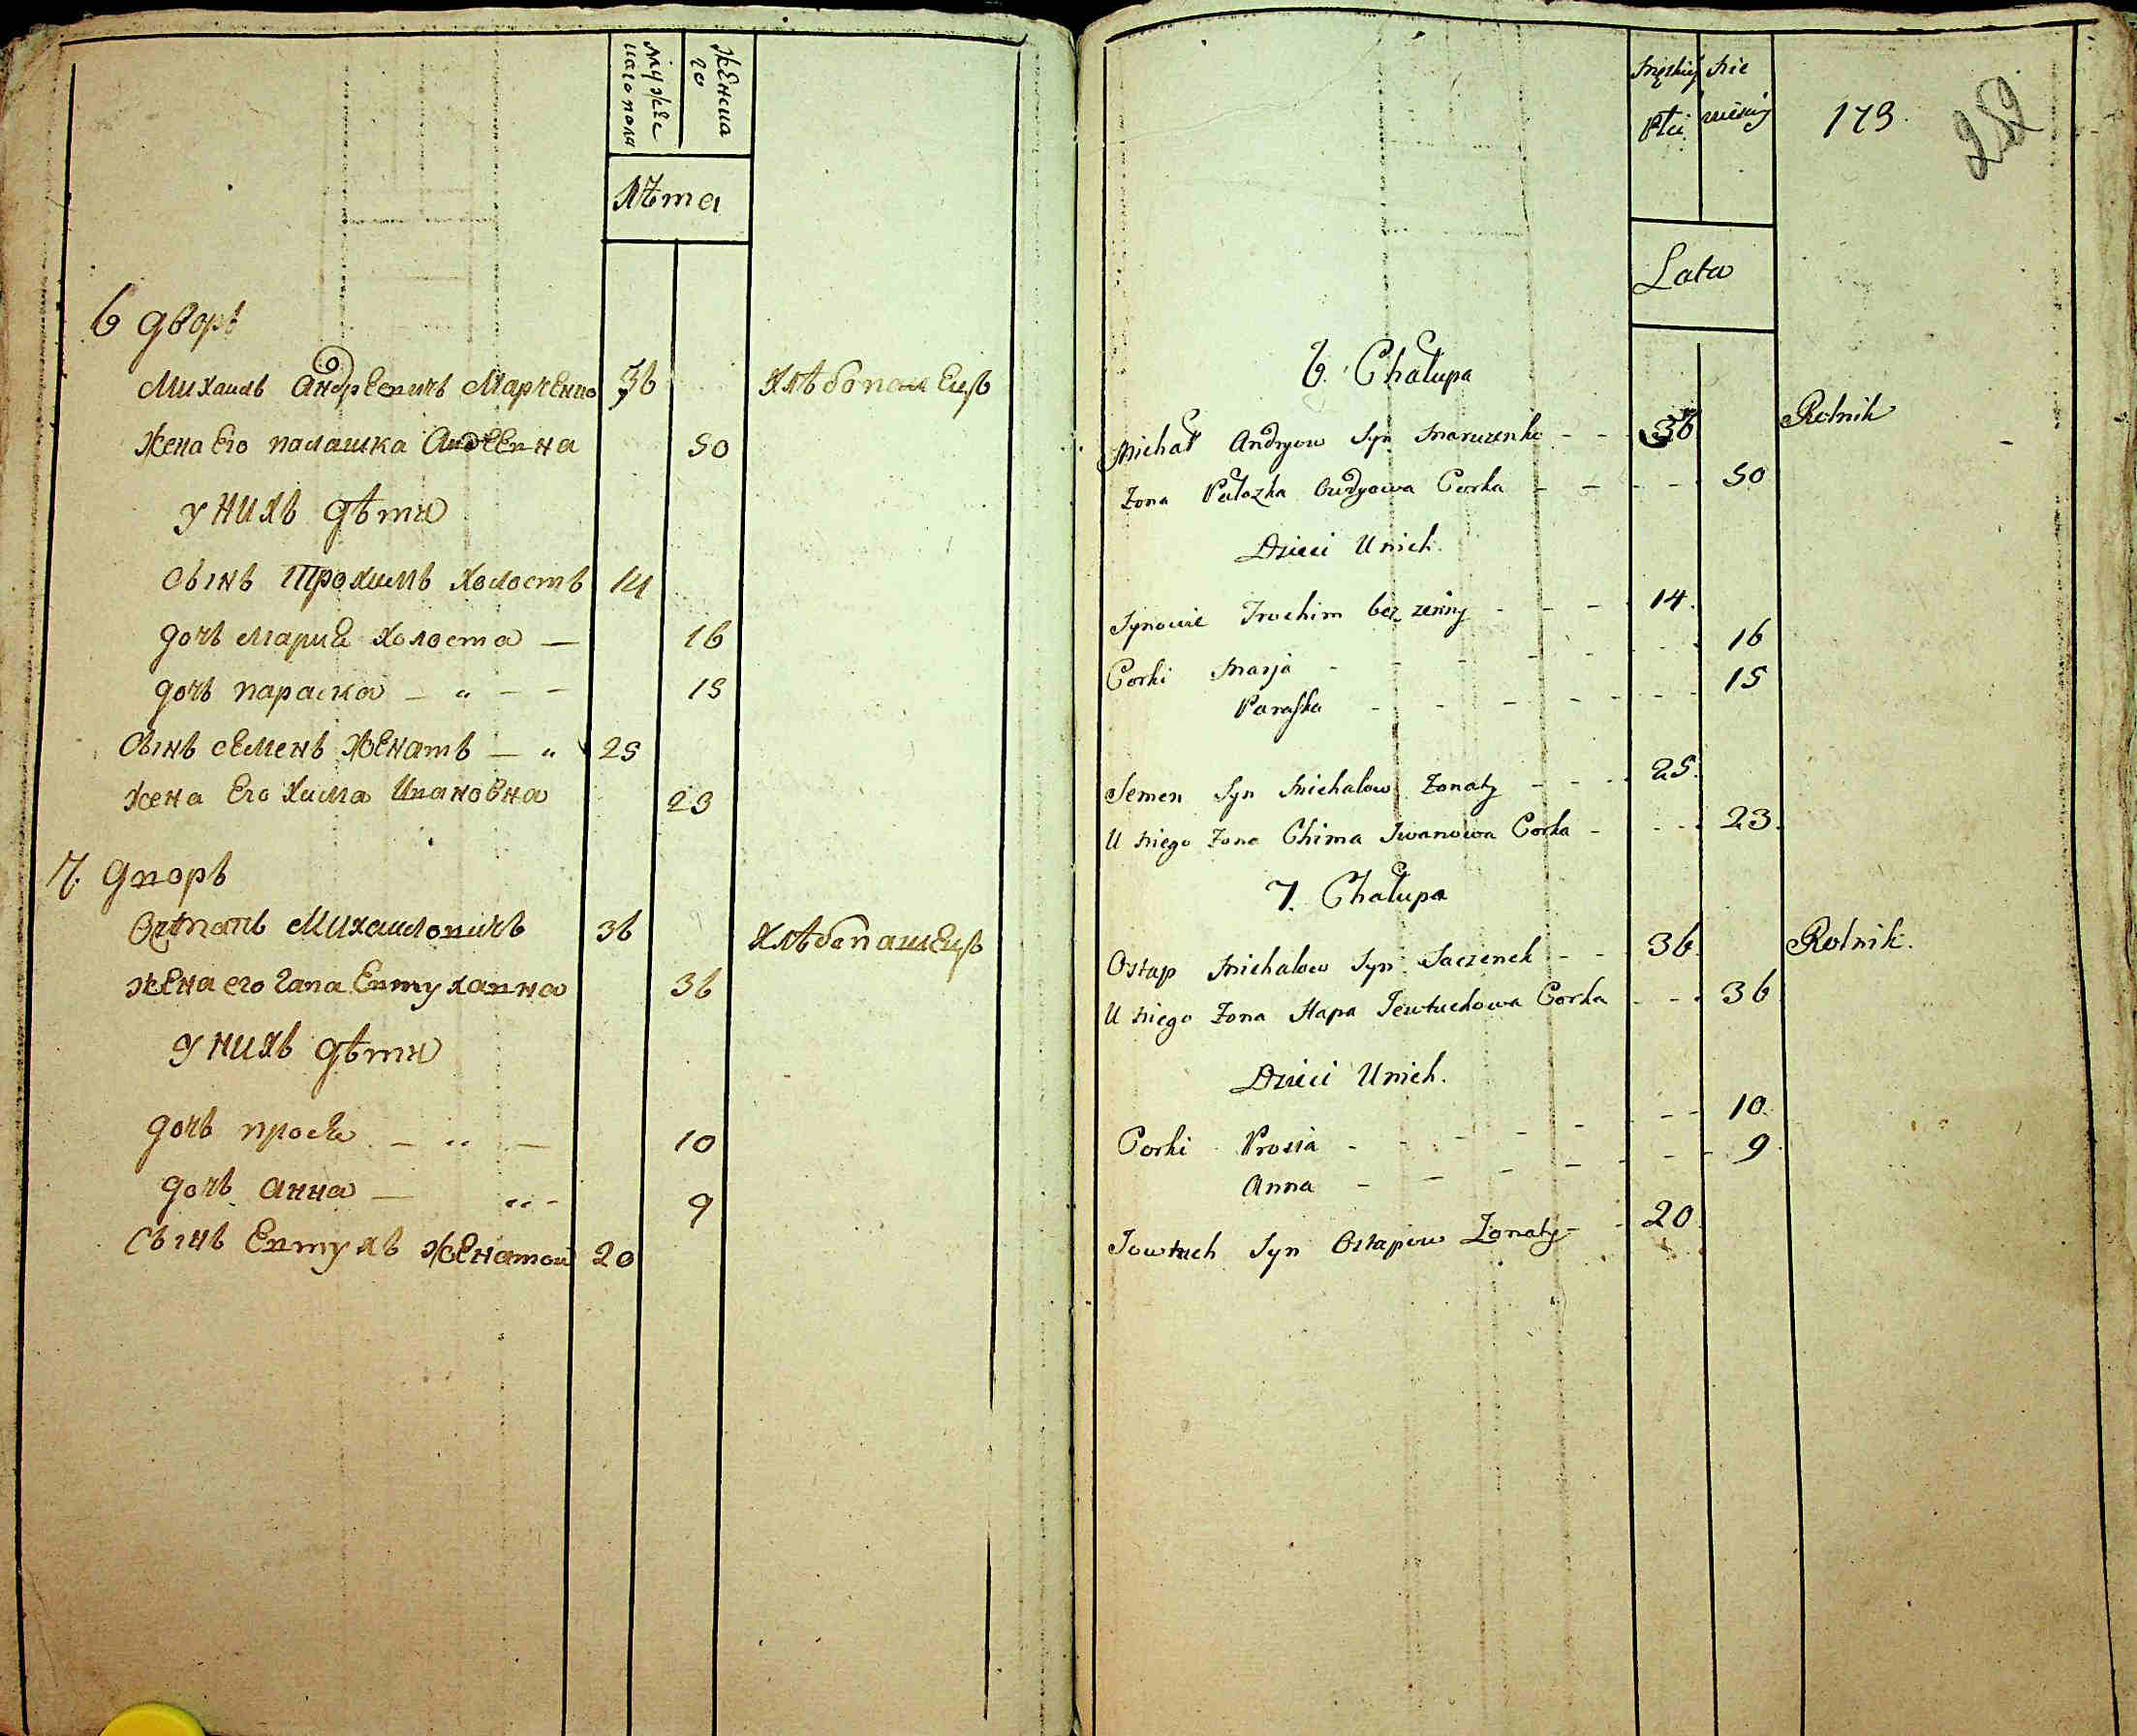 мужес
каго пола
женска
го
лѣта
6 дворъ
Михаилъ Андреевичъ Марченко 36 хлѣбопашецъ
жена Его палашка Андеевна 50
у нихъ дѣти
сынъ Трохимъ холостъ 14
дочь мария холоста — 16
дочь параска — „ — — 15
сынъ семенъ женатъ — „ 25
жена Его хима Ивановна 23
7. дворъ
Остапъ Михайловичъ 36 хлѣбопашецъ
жена его гапа Евтуховна 36
у нихъ дѣти
дочь прося — „ — 10
дочь анна — „ - 9
сынъ Евтухъ женатой 20
Męskiej Nie
Płci wieściej 173. 252
Lata
6. Chałupa
Michał Andryow Syn Marczenko - - 36 Rolnik
Zona Pałazka Andyowa Corka - - - - 50
Dzieci Unich.
Synowie Trochim bez zenny - - - 14.
Corki Marja - - - - - - - 16
Paraska - - - - - - - 15
Semen Syn Michałow Zonaty - - - 25.
U Niego Zona Chima Iwanowa Corka - - - - 23.
7. Chałupa
Ostap Michałow Syn - - 36. Rolnik.
U Niego Zona Hapa Jewtuchowa Corka - - - 36
Dzieci Unich.
Corki Prosia - - - - - - - 10.
Anna - - - - - - - 9.
Jowtuch Syn Ostapow Zonaty - - 20